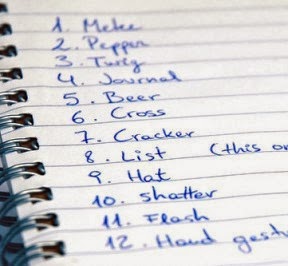 1. Melee
2. Pepper
3. Twig
4. Journal
5. Beer
6. Cross
7. Cracker
8. List (this
9. Hat
10. Shatter
11. Flash
12. Hand